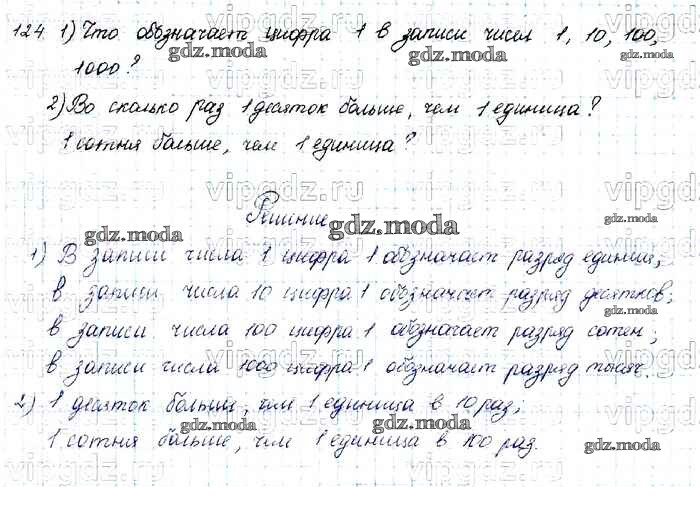 124 1) Что обозначает цифра 1 в записи чисел 1, 10, 100,
1000?
2) Во сколько раз 1 десяток больше, чем 1 единица?
1 сотня больше, чем 1 единица?
Решение
1) В записи числа 1 цифра 1 обозначает разряд единиц;
в записи числа 10 цифра 1 обозначает разряд десятков;
в записи числа 100 цифра 1 обозначает разряд сотен;
в записи числа 1000 цифра 1 обозначает разряд тысяч.
2) 1 десяток больше, чем 1 единица в 10 раз;
1 сотня больше, чем 1 единица в 100 раз.
vipgdz.ru
gdz.moda